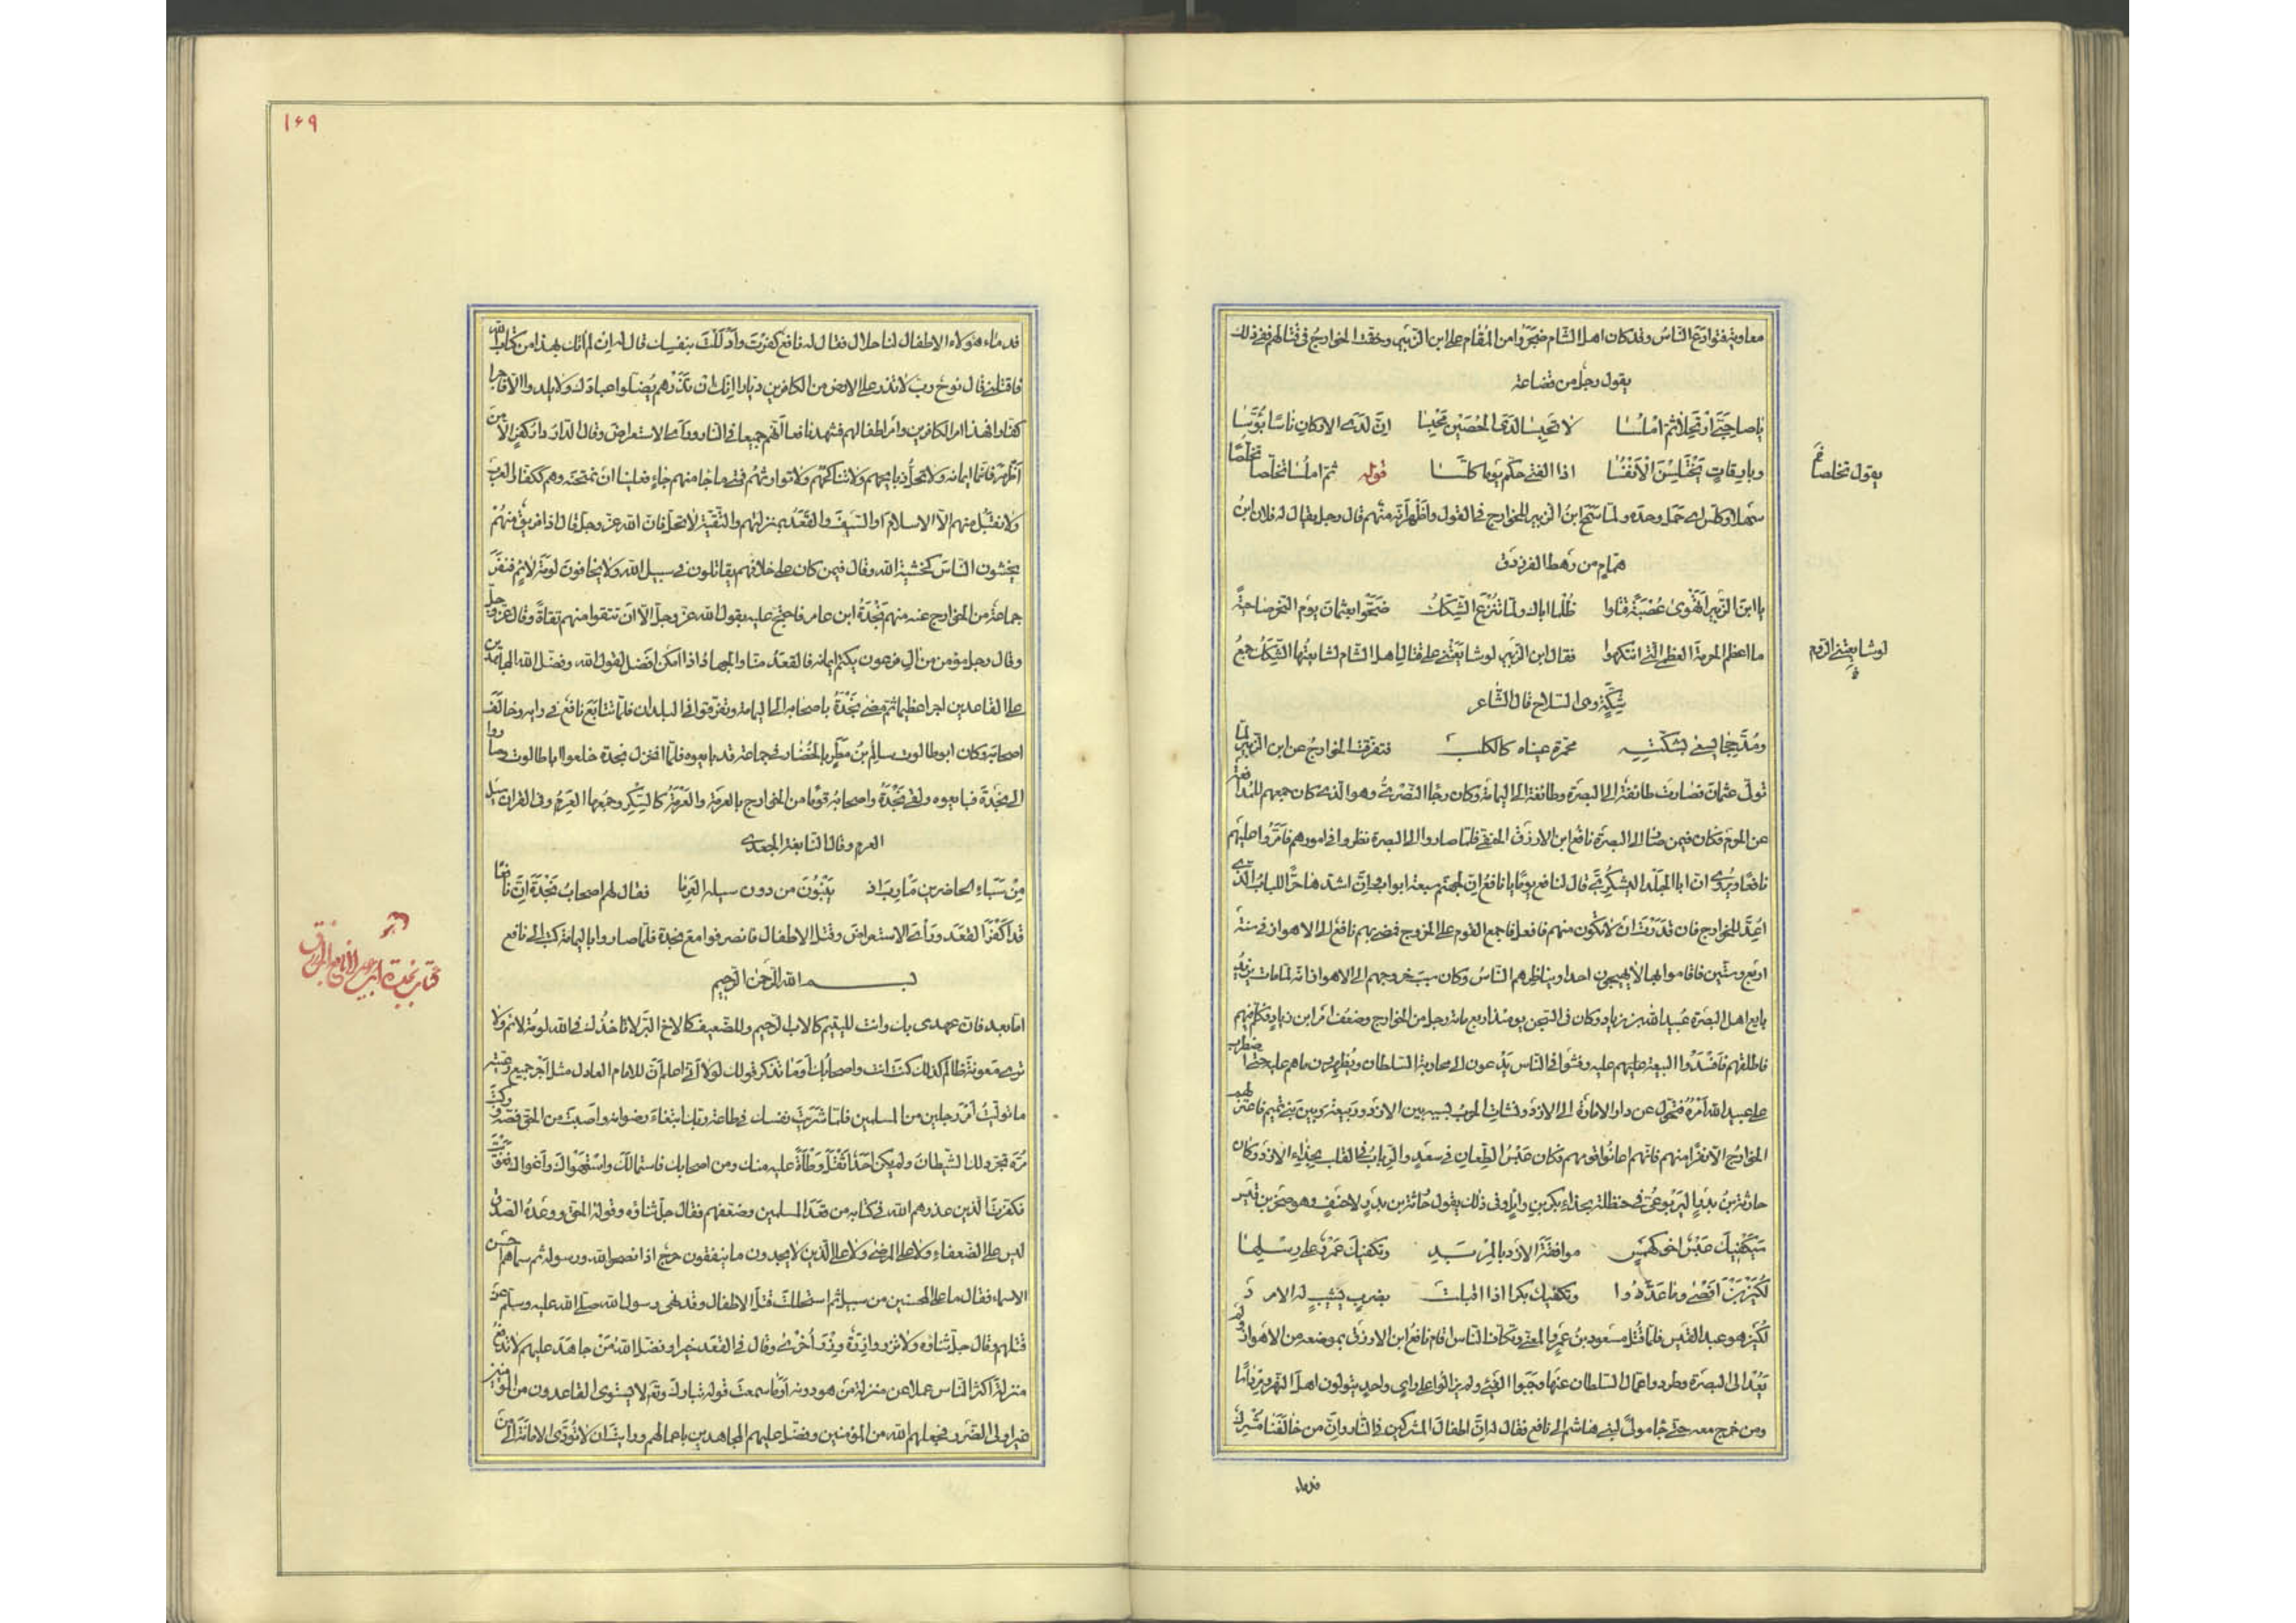 معاوية فتوادع الناسُ وقد كان اهل الشام ضجروا من المُقام على ابن الزبير وحنقت الخوارجُ في قتالهم ففي ذلك
يقول رجل من قضاعة
يا صاحبَيَّ ارتحلا ثم امْلُسَا لا تحبسا لدَى الحُصَيْن محْبِسا اِنّ لدى الاركان ناسًا بُؤَّسَا
وبارِقاتٍ يَخْتَلِسْنَ الْاَنْفُسَا اذا الفتى حكّم يوما كلّسا قوله ثمّ املُسا تخلّصا تخلّصًا
يقول تخلصا
سهلا وكلّس اى حمَل وجدّ ولمّا سَمح ابنُ الزبير للخوارج في القول واظْهر اَنّه منهم قال رجل يقال له فلان ابنُ
همّام من رهط الفرزدق
يا ابن الزُبير اَتهْوىٰ عُصْبَةً قتلوا ظُلما اباك ولمّا تُنْزَع الشِكَكُ ضحّوا بعثمان يوم النحر ضاحيةً
ما اعظم الحرمة العظمى التى انتهكوا فقال ابن الزبير لو شايعتنى على قتال اهل الشام لشايعتها الشِكَكُ جمعُ
لو شايعتنى الروم
شِكّة وهى السلاح قال الشاعر
ومُدَجّجا يسعى بشكّتِه محمّرة عيناه كالكلب فتفرّقت الخوارجُ عن ابن الزبير لمّا
تولّى عثمان فصارت طائفة الى البصرة وطائفة الى اليمامة وكان رجا النَّصْرى وهو الذى كان جمعهم للمدافعة
عن الحرم فكان فيمن صار الى البصرة نافع ابن الازرق الحنفى فلما صاروا الى البصرة نظروا فى امورهم فاَمَّرُوا عليهم
نافعًا ويُروى ان ابا الجلد اليشكرىّ قال لنافع يومًا يا نافع اِنّ لجهنّم سبعة ابواب واِنّ اشدّها حرًّا للباب الذى
اُعِدّ للخوارج فان قدرتَ اَن لا تكون منهم فافعل فاجمع القوم على الخروج فمضى بهم نافع الى الاهواز فى سنة
اربع وستّين فاقاموا بها لا يهيجون احدا ويناظرهم الناسُ وكان سبب خروجهم الى الاهواز انّه لما مات يزيد
بايع اهل البصرة عبيد الله بن زياد وكان فى السّجن يومئذ اربع مائة رجل من الخوارج وضعُف امْر ابن زياد فكُلّم فيهم
فاطلقهم فافْسَدُوا البيعة عليهم عليه وفشَوا فى الناس يَدْعون الى محاربة السلطان ويُظهِرون ما هم عليه حتّى اضطرب
على عبيد الله اَمْرُه فتحوّل عن دار الامارة الى الازد ونشأت الحرب بسببه بين الازد وربيعة وبين بنى تميم فاعتزلهم
الخوارج الّا نفرًا منهم فانّهم اعانُوا قومهم فكان عَبْسُ الطِعانِ فى سعدٍ والرِبابُ فى القلب بحِذاء الازد وكان
حارثة بنُ بدرٍ اليَربُوعىّ فى حنظلة بحذاء بكر بن وائل وفى ذلك يقول حارثة بن بدرٍ لاحنف وهو صخر بن قيس
سَيَكْفِيك عَبْسٌ اخو كهمسٍ مواقفة الازد بالمِرْبَدِ وتكفيك عَمرٌو على رِسلها
لُكَيْزَ بْنَ اَفْصَى وما عَدّدُوا وتكفيك بكرا اذا اقبلت بضربٍ يشيب له الامرد
لُكَيْز هو عبد القيس فلمّا قُتل مسعود بنُ عَمرو المعنىّ وتكافّ الناس اقام نافعُ ابن الازرق بموضعه من الاهواز ولم
يَعُدْ الى البصرة وطردوا عمّال السلطان عنها وجَبَوا الفىء ولم يزالوا على راى واحد يتولّون اهلَ النهر ومِرْداسًا
ومن خرج معه حتّى جا مولًى لبنى هاشم الى نافع فقال له اِنّ اطفال المشركين فى النار واِنّ من خالَفنا مُشْرِكٌ
فدماء
١٦٩
فدماء هؤلاء الاطفال لنا حلال فقال له نافع كفَرْتَ واَدْلَلْتَ بنفسك قال له اِنْ لم آتك بهذا من كتاب الله
فاقتلنى قال نوح ربّ لا تذر على الارض من الكافرين ديّارا اِنّك اِن تَذَرْهم يُضلّوا عبادك ولا يلدوا الّا فاجرا
كفّارا فهذا امر الكافرين وامْر اطفالهم فشهد نافع انّهم جميعا فى النار وراَى الاستعراض وقال الدار دار كفرٍ الّا من
اَظْهَرَ ايمانه ولا يحلّ اكل ذبايحهم ولا تناكحهم ولا توارثهم ومتى ما جا منهم جاءٍ فعلينا ان نمتحنه وهم ككفّار العرب
ولا نقبل منهم الّا الاسلام اَو السّيفَ والقَعَدُ بمنزلتهم والتقيّة لا تحلّ فان الله عزّ وجل قال اذا فريق منهُمْ
يخشون الناسَ كخشية الله وقال فيمن كان على خلافهم يقاتلون فى سبيل الله ولا يخافون لومة لائم فنفرَ
جماعة من الخوارج عنه منهم نَجْدةُ ابن عامر فاحتجّ عليه بقول الله عزّ وجلّ الّا ان تتقوا منهم تقاة وقال عزّ وجلّ
وقال رجل مؤمن من آل فرعون يكتم ايمانه فالقعَد منّا والجهاد اذا امكن افضل لقول الله وفضّل الله المجاهدين
على القاعدين اجرا عظيما ثم مضى نَجْدَةُ باصحابه الى اليمامة وتفرّقوا فى البلدان فلمّا تتايَع نافع فى رايه وخالف
اصحابَه وكان ابو طالوت سالِم بنُ مطرٍ بالخَضارِم فى جماعة قد بايعوه فلمّا انخزل نجدة خلعوا ابا طالوت وصاروا
الى نجدة فبايعوه ولقى نَجْدَةُ واصحابُه قومًا من الخوارج بالعرمة والعَرَمَةُ كالسِّكر وجمعها العَرِمُ وفى القرآن سيل
العرم وقال النابغة الجعدى
مِنْ سَبَاء الحاضرين مَأْرِبَ اذ يَبْنُون من دون سيله العَرِمَا فقال لهم اصحاب نَجْدَةَ اِنّ نافعًا
قد اَكْفَر القعَد وراَى الاستعراض وقتل الاطفال فانصرفوا مع نجدة فلمّا صاروا باليمامة كتب الى نافع
بسم الله الرحمن الرحيم
كتاب نجدة ابن عامر الى نافع ابن الازرق
امّا بعد فان عهدى بك وانت لليتيم كالاب الرحيم وللضعيف كالاخ البَرّ لا تاخذك فى الله لومة لائم ولا
ترى معونة ظالم كذلك كنت انت واصحابُك اَوَما تذكر قولك لولا اَنّى اعلم اَنّ للامام العادل مثل اَجْر جميع رعيّته
ما تولّيتُ اَمْر رجلين من المسلمين فلمّا شَرَيتَ نفسك فى طاعة ربّك ابتغاء رضوانه واصبت من الحقّ فصّه وركبتَ
مُرّه تجرّد لك الشيطان ولم يكن احد اثقَلَ وطْأةً عليه منك ومن اصحابك فاستمالك واستهواك واَغواك فغويت
فكفّرتَ الّذين عذرهم الله فى كتابه من قعَد المسلمين وضعَفهم فقال جلّ ثناؤه وقوله الحقّ ووعدُه الصدق
ليس على الضعفاء ولا على المرضى ولا على الّذين لا يجدون ما ينفقون حرج اذا نصحوا لله ورسوله ثم سمّاهم احسن
الاسماء فقال ما على المحسنين من سبيل ثم استحللت قتلَ الاطفال وقد نهى رسول الله صلّى الله عليه وسلّم عن
قتلهم وقال جلّ ثناؤه ولا تزر وازرة وِزْرَ اُخْرى وقال فى القعَد خيرا وفضّل اللهُ مَنْ جاهَدَ عليهم لا تدفع
منزلة اكثر الناس عملا عن منزلة مَن هو دونه اَوَما سمعتَ قوله تبارك وتع لا يستوى القاعدون من المؤمنين
غير اولى الضرر فجعلهم الله من المؤمنين وفضّل عليهم المجاهدين باعمالهم ورايتَ ان لا تؤدّى الامانة الى من